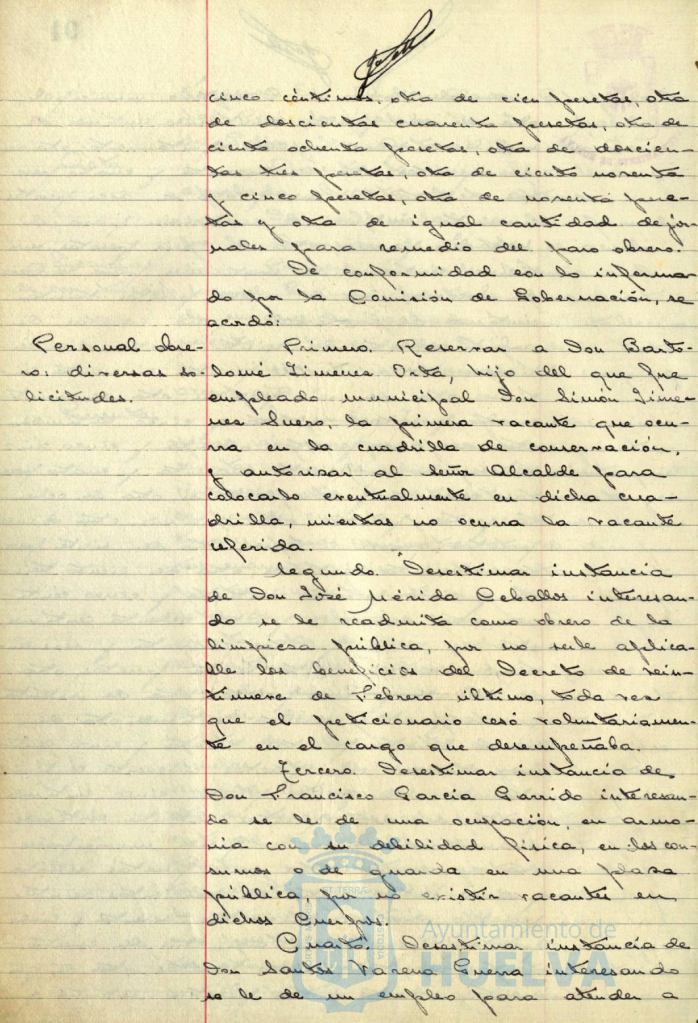 cinco céntimos, otra de cien pesetas, otra
de doscientas cuarenta pesetas, otra de
ciento ochenta pesetas, otra de doscien-
tas tres pesetas, otra de ciento noventa
y cinco pesetas, otra de noventa pese-
tas y otra de igual cantidad de jor-
nales para remedio del paro obrero.
De conformidad con lo informa-
do por la Comisión de Gobernación, se
acordó:
Personal obre-
ro: diversas so-
licitudes.
Primero. Reservar a Don Barto-
lomé Jimenes Orta, hijo del que fue
empleado municipal Don Simón Jime-
nes Suero, la primera vacante que ocu-
rra en la cuadrilla de conservación,
y autorizar al Señor Alcalde para
colocarlo eventualmente en dicha cua-
drilla, mientras no ocurra la vacante
referida.
Segundo. Desestimar instancia
de Don José Mérida Ceballos interesan-
do se le readmita como obrero de la
limpieza pública, por no serle aplica-
ble los beneficios del Decreto de vein-
tinueve de Febrero último, toda vez
que el peticionario cesó voluntariamen-
te en el cargo que desempeñaba.
Tercero. Desestimar instancia de
Don Francisco García Garrido interesan-
do se le de una ocupación, en armo-
nia con su debilidad física, en los con-
sumos o de guarda en una plaza
pública, por no existir vacantes en
dichos Cuerpos.
Cuarto. Desestimar instancia de
Don Santos Varena Guerra interesando
se le de un empleo para atender a
Ayuntamiento de
HUELVA